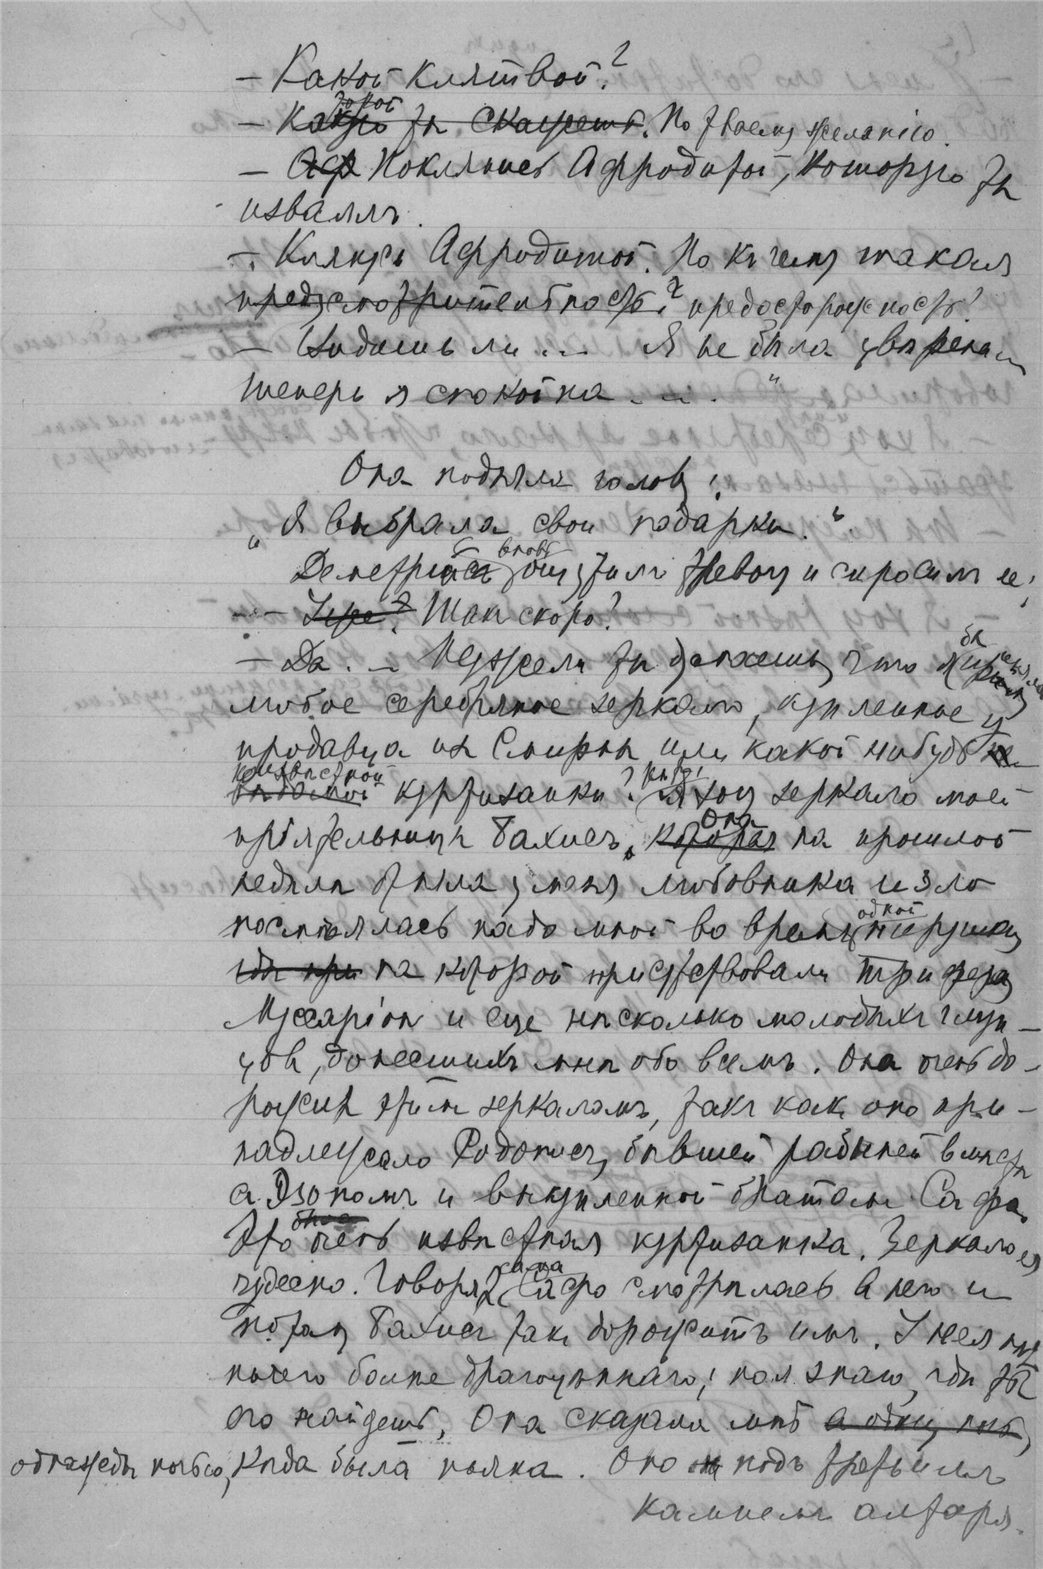 — Какой клятвой?
— Какою ты скажешь. По твоему желанію.
— Аф Поклянись Афродитой, которую ты
изваялъ.
— Клянусь Афродитой. Но къ чему такая
предусмотрительность? предосторожность?
— Видишь ли ... Я не была увѣрена
теперь я спокойна ....."
Она подняла голову:
"Я выбрала свои подарки."
Деметрій вновь ощутилъ тревогу и спросилъ ее:
— Уже? Такъ скоро?
— Да ... Неужели ты думаешь, что я бы
любое серебряное зеркало, купленное у
продавца изъ Смирны или какой нибудь не
неизвѣстной куртизанки? Нѣтъ! Я хочу зеркало моей
пріятельницы Бахисъ. Она которая на прошлой
недѣлѣ отняла у меня любовника и зло
посмѣялась надо мной во время одной пирушки
на которой присутствовали Трифера
Музаріонъ и еще нѣсколько молодыхъ глуп-
цовъ, донесшихъ мнѣ обо всемъ. Она очень до-
рожитъ этимъ зеркаломъ, такъ какъ оно при-
надлежало Родописъ, бывшей рабыней вмѣстѣ
съ Эзопомъ и выкупленной братомъ Сафо.
Это очень извѣстная куртизанка. Зеркало ея
чудесно. Говорятъ, сама Сафо смотрѣлась въ него и
потому Бахисъ такъ дорожитъ имъ. У нея нѣтъ
ничего болѣе драгоцѣннаго; но я знаю, гдѣ ты
его найдешь. Она сказала мнѣ
однажды ночью, когда была пьяна. Оно подъ третьимъ
камнемъ алтаря.